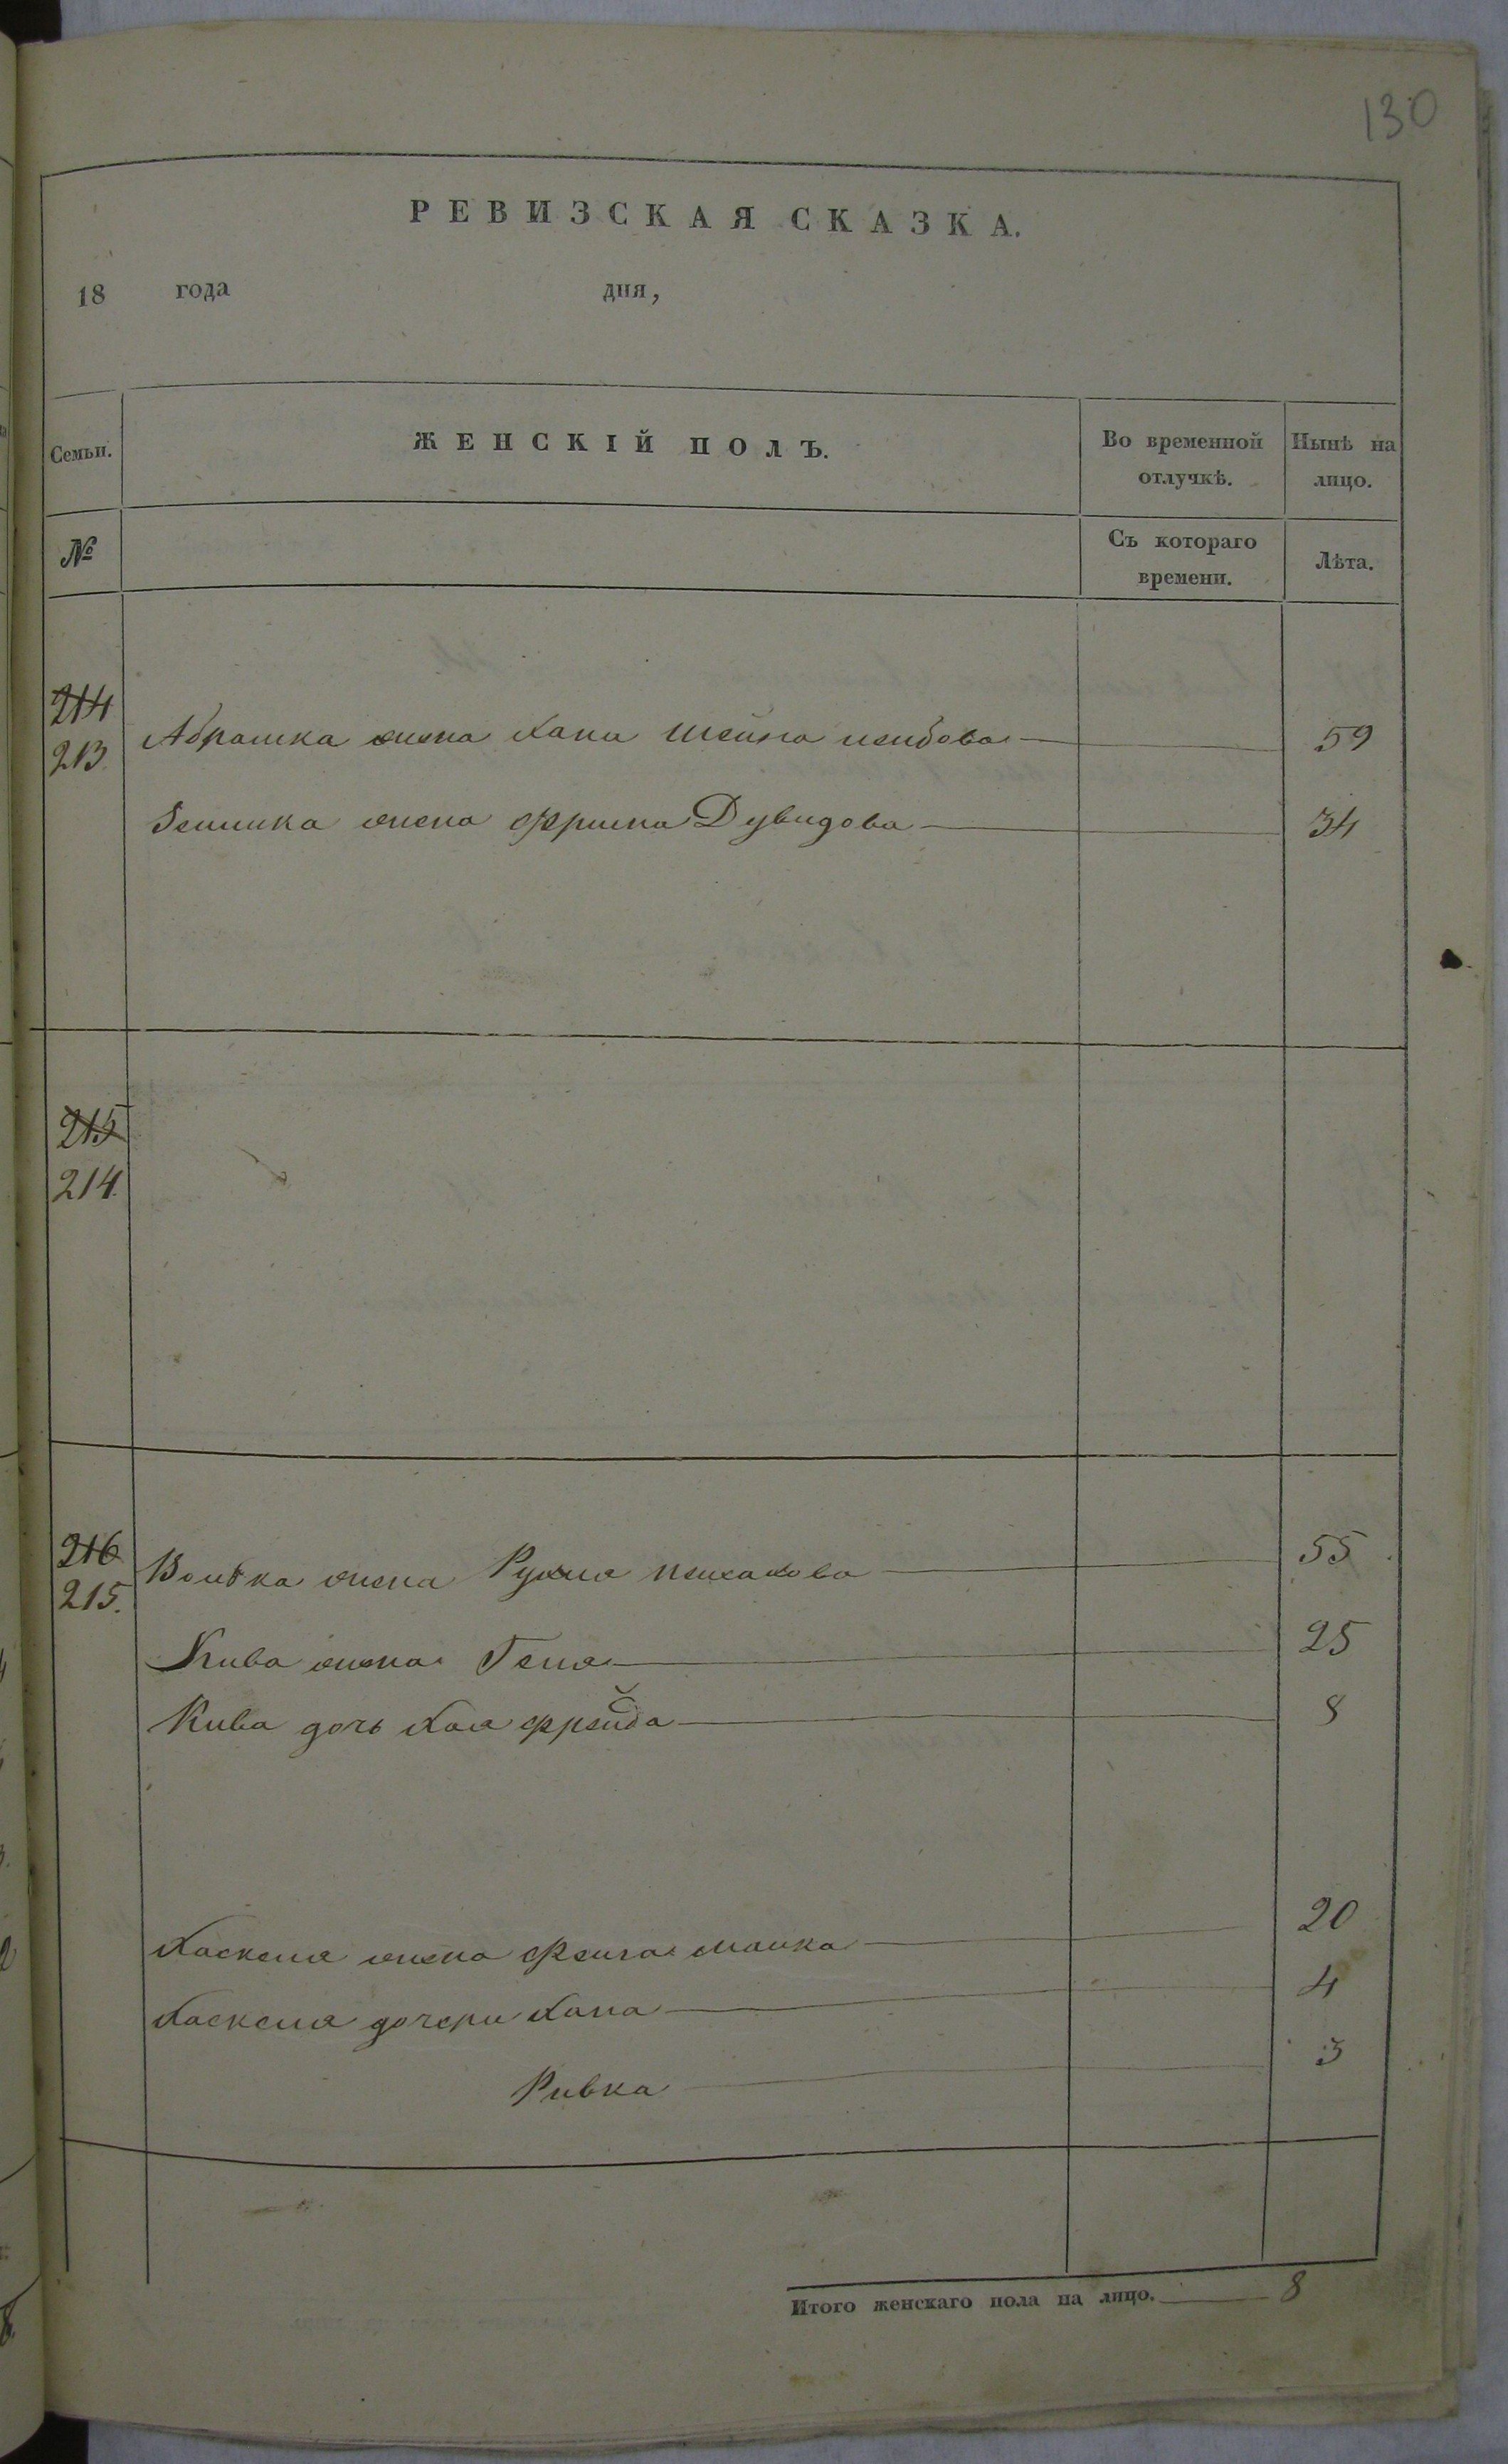 130
РЕВИЗСКАЯ СКАЗКА.
18 года дня,
Семьи. ЖЕНСКІЙ ПОЛЪ. Во временной отлучкѣ. Нынѣ на лицо.
№ Съ котораго времени. Лѣта.
214
213 Абрашка жена Хана Шейна Лейбова 59
жена Фрима Дувидова 34
215
214.
216
215. Вольвка жена Рухля 55
Кива жена Геня 25
Кива дочь Хая Фрейда 8
Хаскеля жена Фейга Малка 20
Хаскеля дочери Хана 4
Ривка 3
Итого женскаго пола на лицо. 8